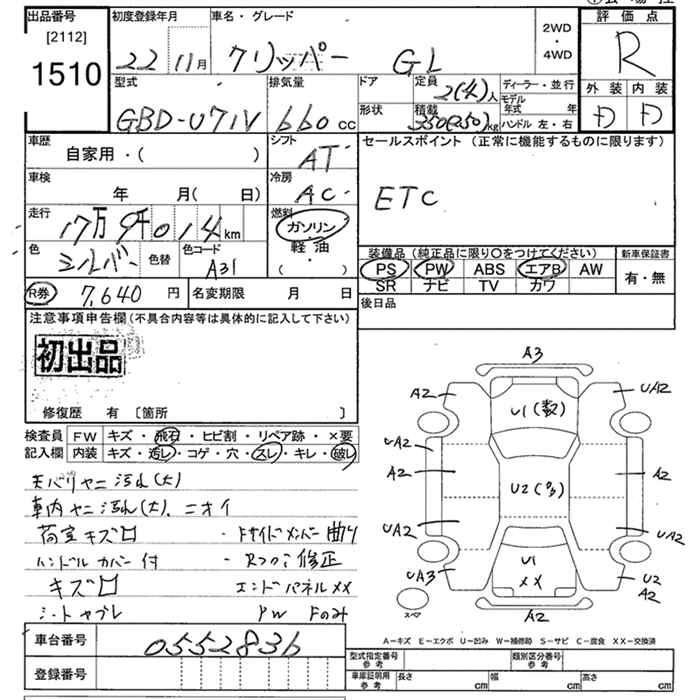 出品番号 初度登録年月 車名・グレード 2WD・4WD 評価点
[2112]
1510 22 11月 クリッパー GL R
型式 排気量 ドア 定員 2(4)人 ディーラー・並行 外装 内装
GBD-U71V 660cc 形状 積載 350(250)kg モデル年式 年 ハンドル 左・右 D D
車歴 シフト セールスポイント(正常に機能するものに限ります)
自家用・( ) AT
車検 冷房 ETC
年 月( 日) AC
走行 燃料
17万9千014km ガソリン・軽油・( )
色 シルバー 色替 色コード A31
装備品(純正品に限り○をつけてください) 新車保証書
PS PW ABS エアB AW 有・無
SR ナビ TV カワ
R券 7,640円 名変期限 月 日 後日品
注意事項申告欄(不具合内容等は具体的に記入して下さい)
初出品
修復歴 有 〔箇所 〕
検査員 FW キズ・飛石・ヒビ割・リペア跡・×要
記入欄 内装 キズ・汚レ・コゲ・穴・スレ・キレ・破レ
天バリヤニ汚れ(大)
車内ヤニ汚れ(大)、ニオイ
荷室キズ凹 ・Fサイドメンバー曲り
ハンドルカバー付 ・Rフロア修正
キズ凹 エンドパネル××
シートヤブレ PW Fのみ
A3
A2 U1(数) UA2
UA2 A2
A2 U2(多) A2
UA2 UA2
UA3 U1 ×× U2 A2
スペア A2
A-キズ E-エクボ U-凹み W-補修跡 S-サビ C-腐食 XX-交換済
車台番号 0552836
登録番号
型式指定番号 参考 類別区分番号 参考
車庫証明用 参考 長さ cm 幅 cm 高さ cm